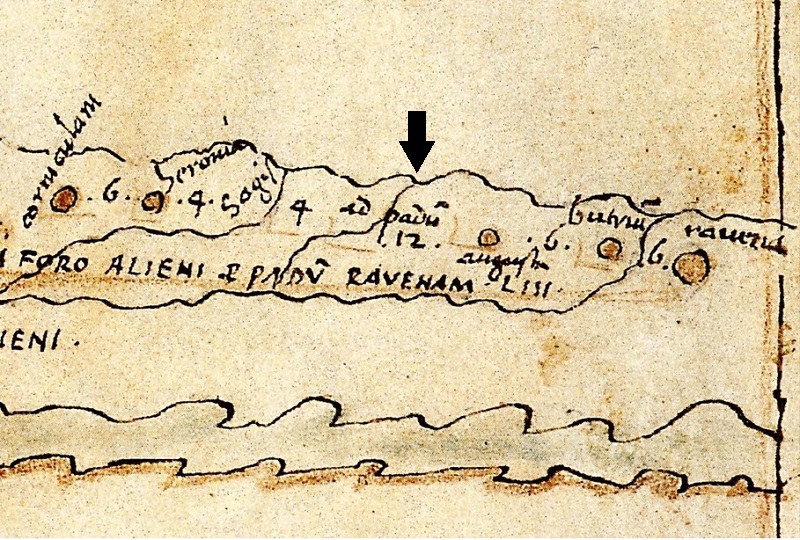 corniculani
. 6 .
. 4 .
Sagis
4
ad padū
. 12 .
august
. 6 .
butriū
6 .
ravenna
FORO ALIENI P PADV̄ RAVENAM LIII .
IENI .